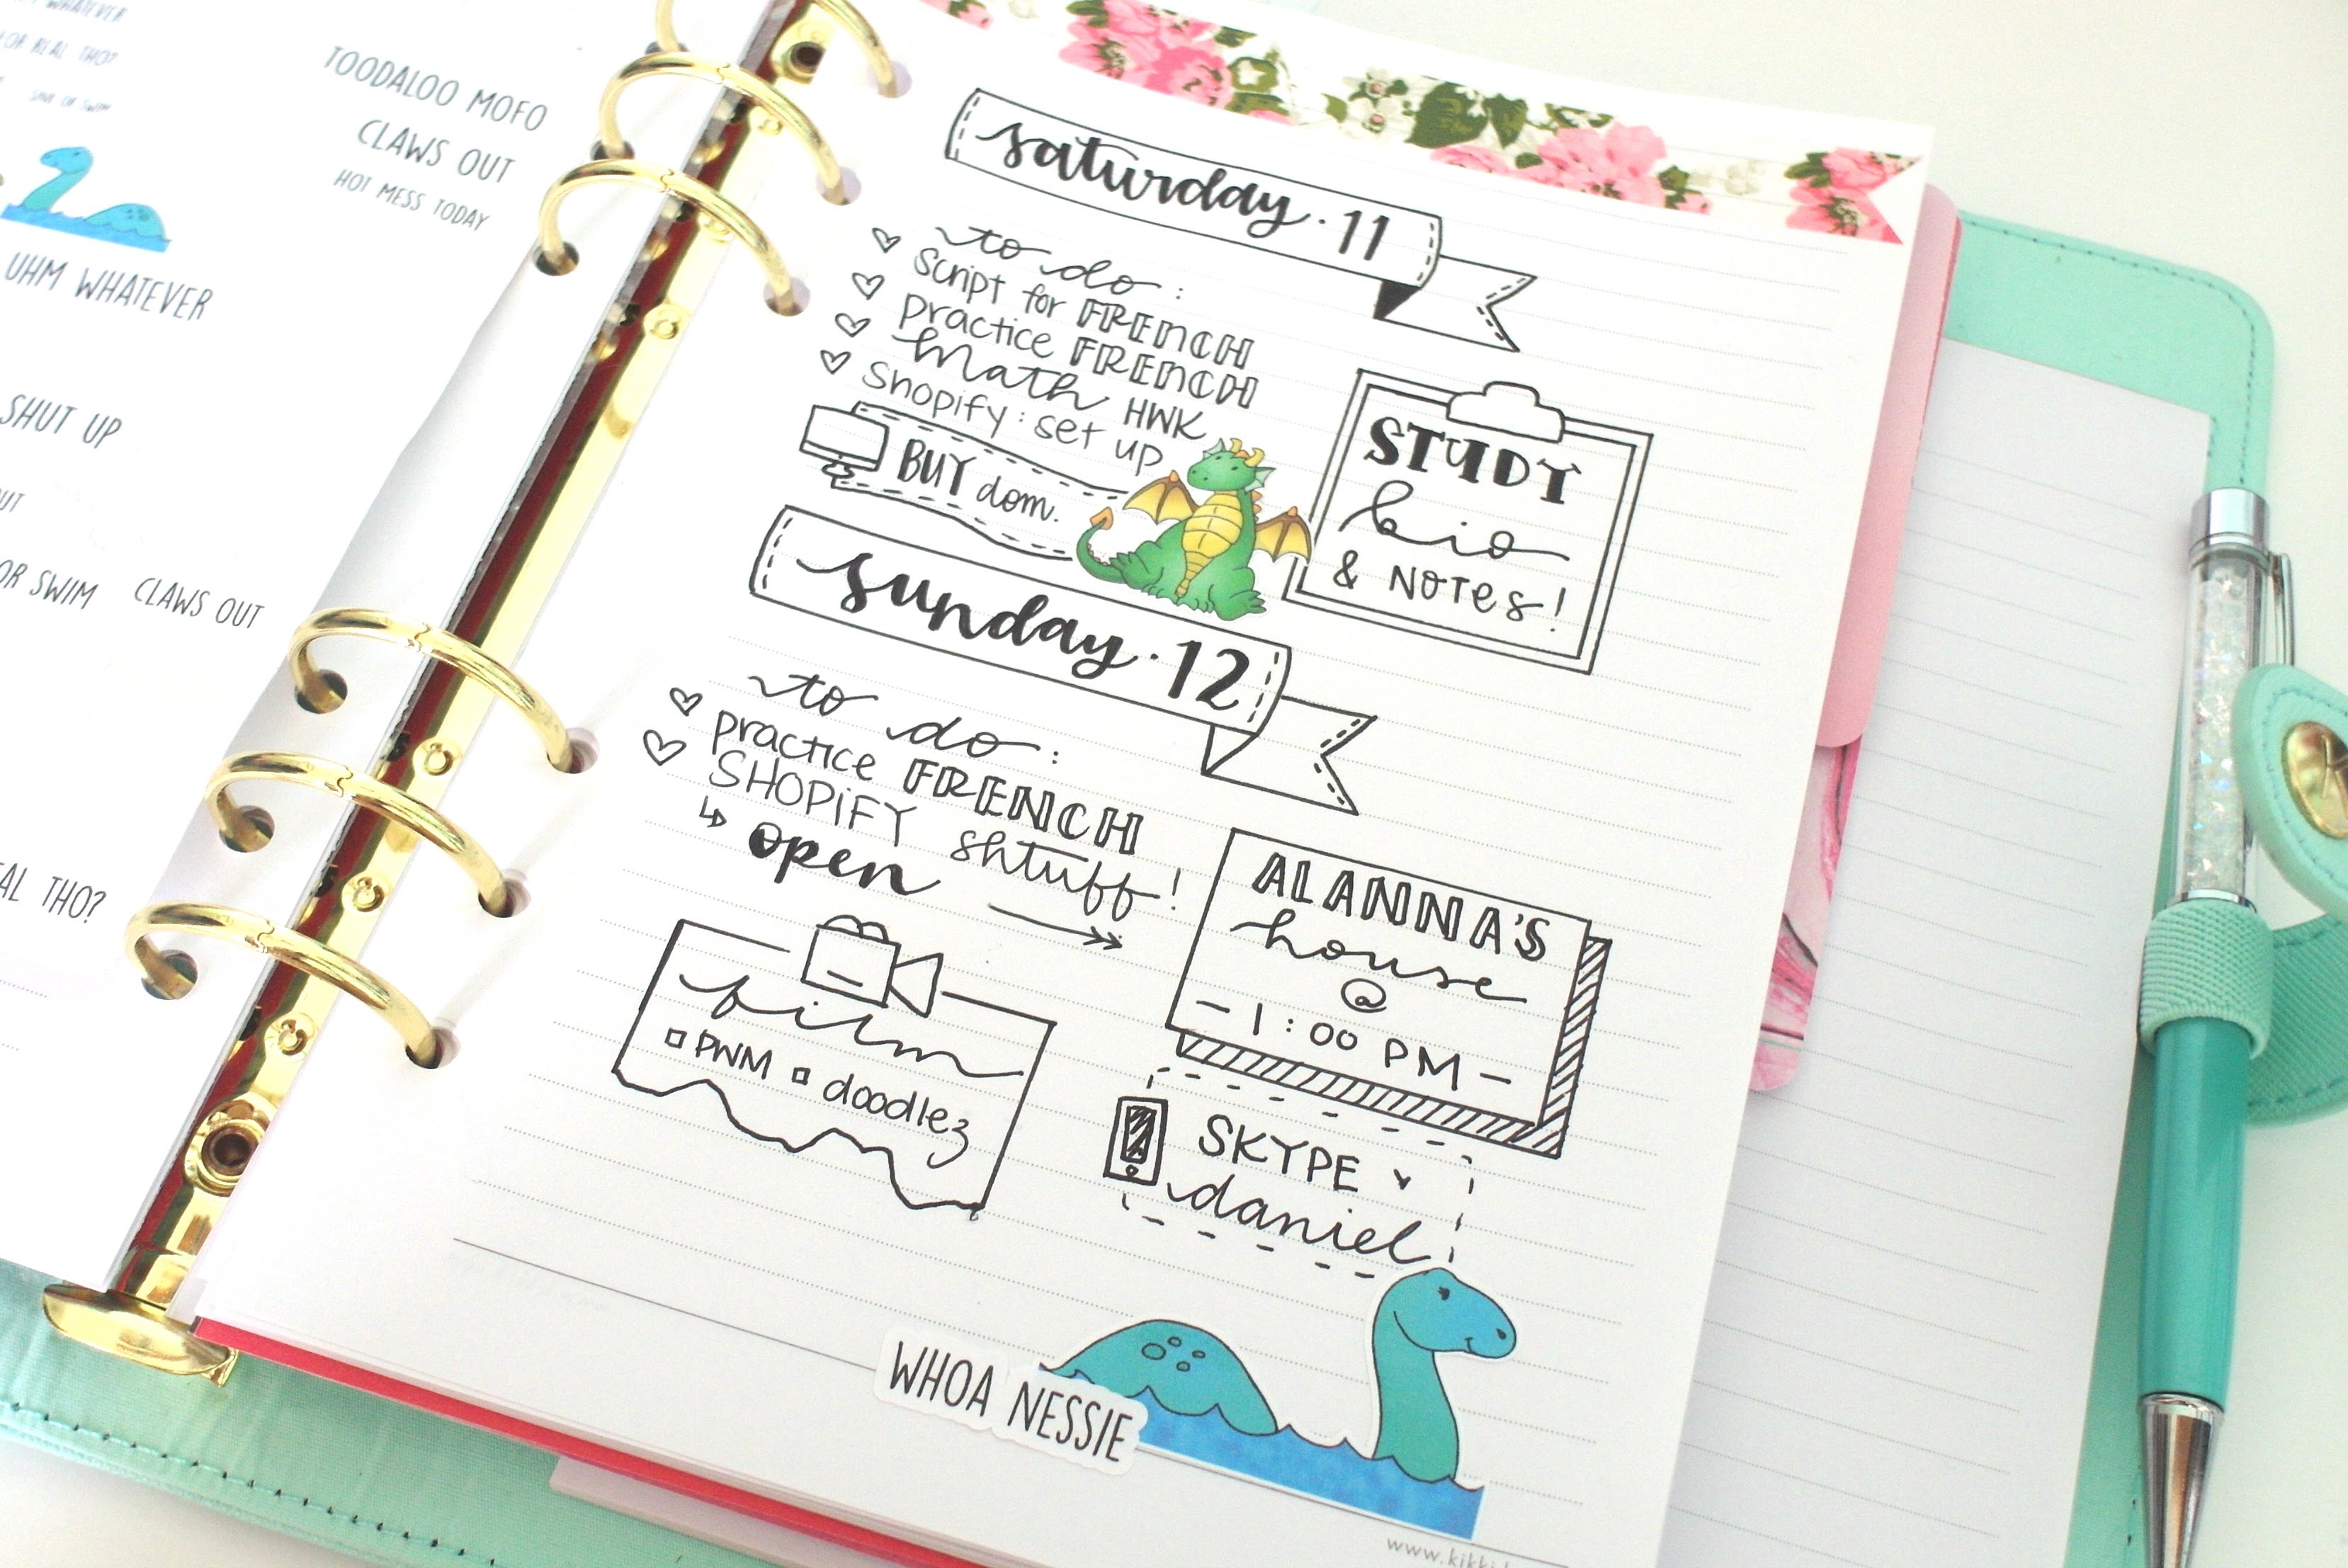 WHATEVER
FOR REAL THO?
SINK OR SWIM
TOODALOO MOFO
CLAWS OUT
HOT MESS TODAY
UHM WHATEVER
SHUT UP
OUT
OR SWIM
CLAWS OUT
THO?
saturday · 11
to do:
script for FRENCH
practice FRENCH
math HWK
shopify: set up
BUY dom.
STUDY
bio
& NOTES!
sunday · 12
to do:
practice FRENCH
SHOPIFY shtuff!
↳ open
film
PWM doodlez
ALANNA'S
house
@
- 1:00 PM -
SKYPE
daniel
WHOA NESSIE